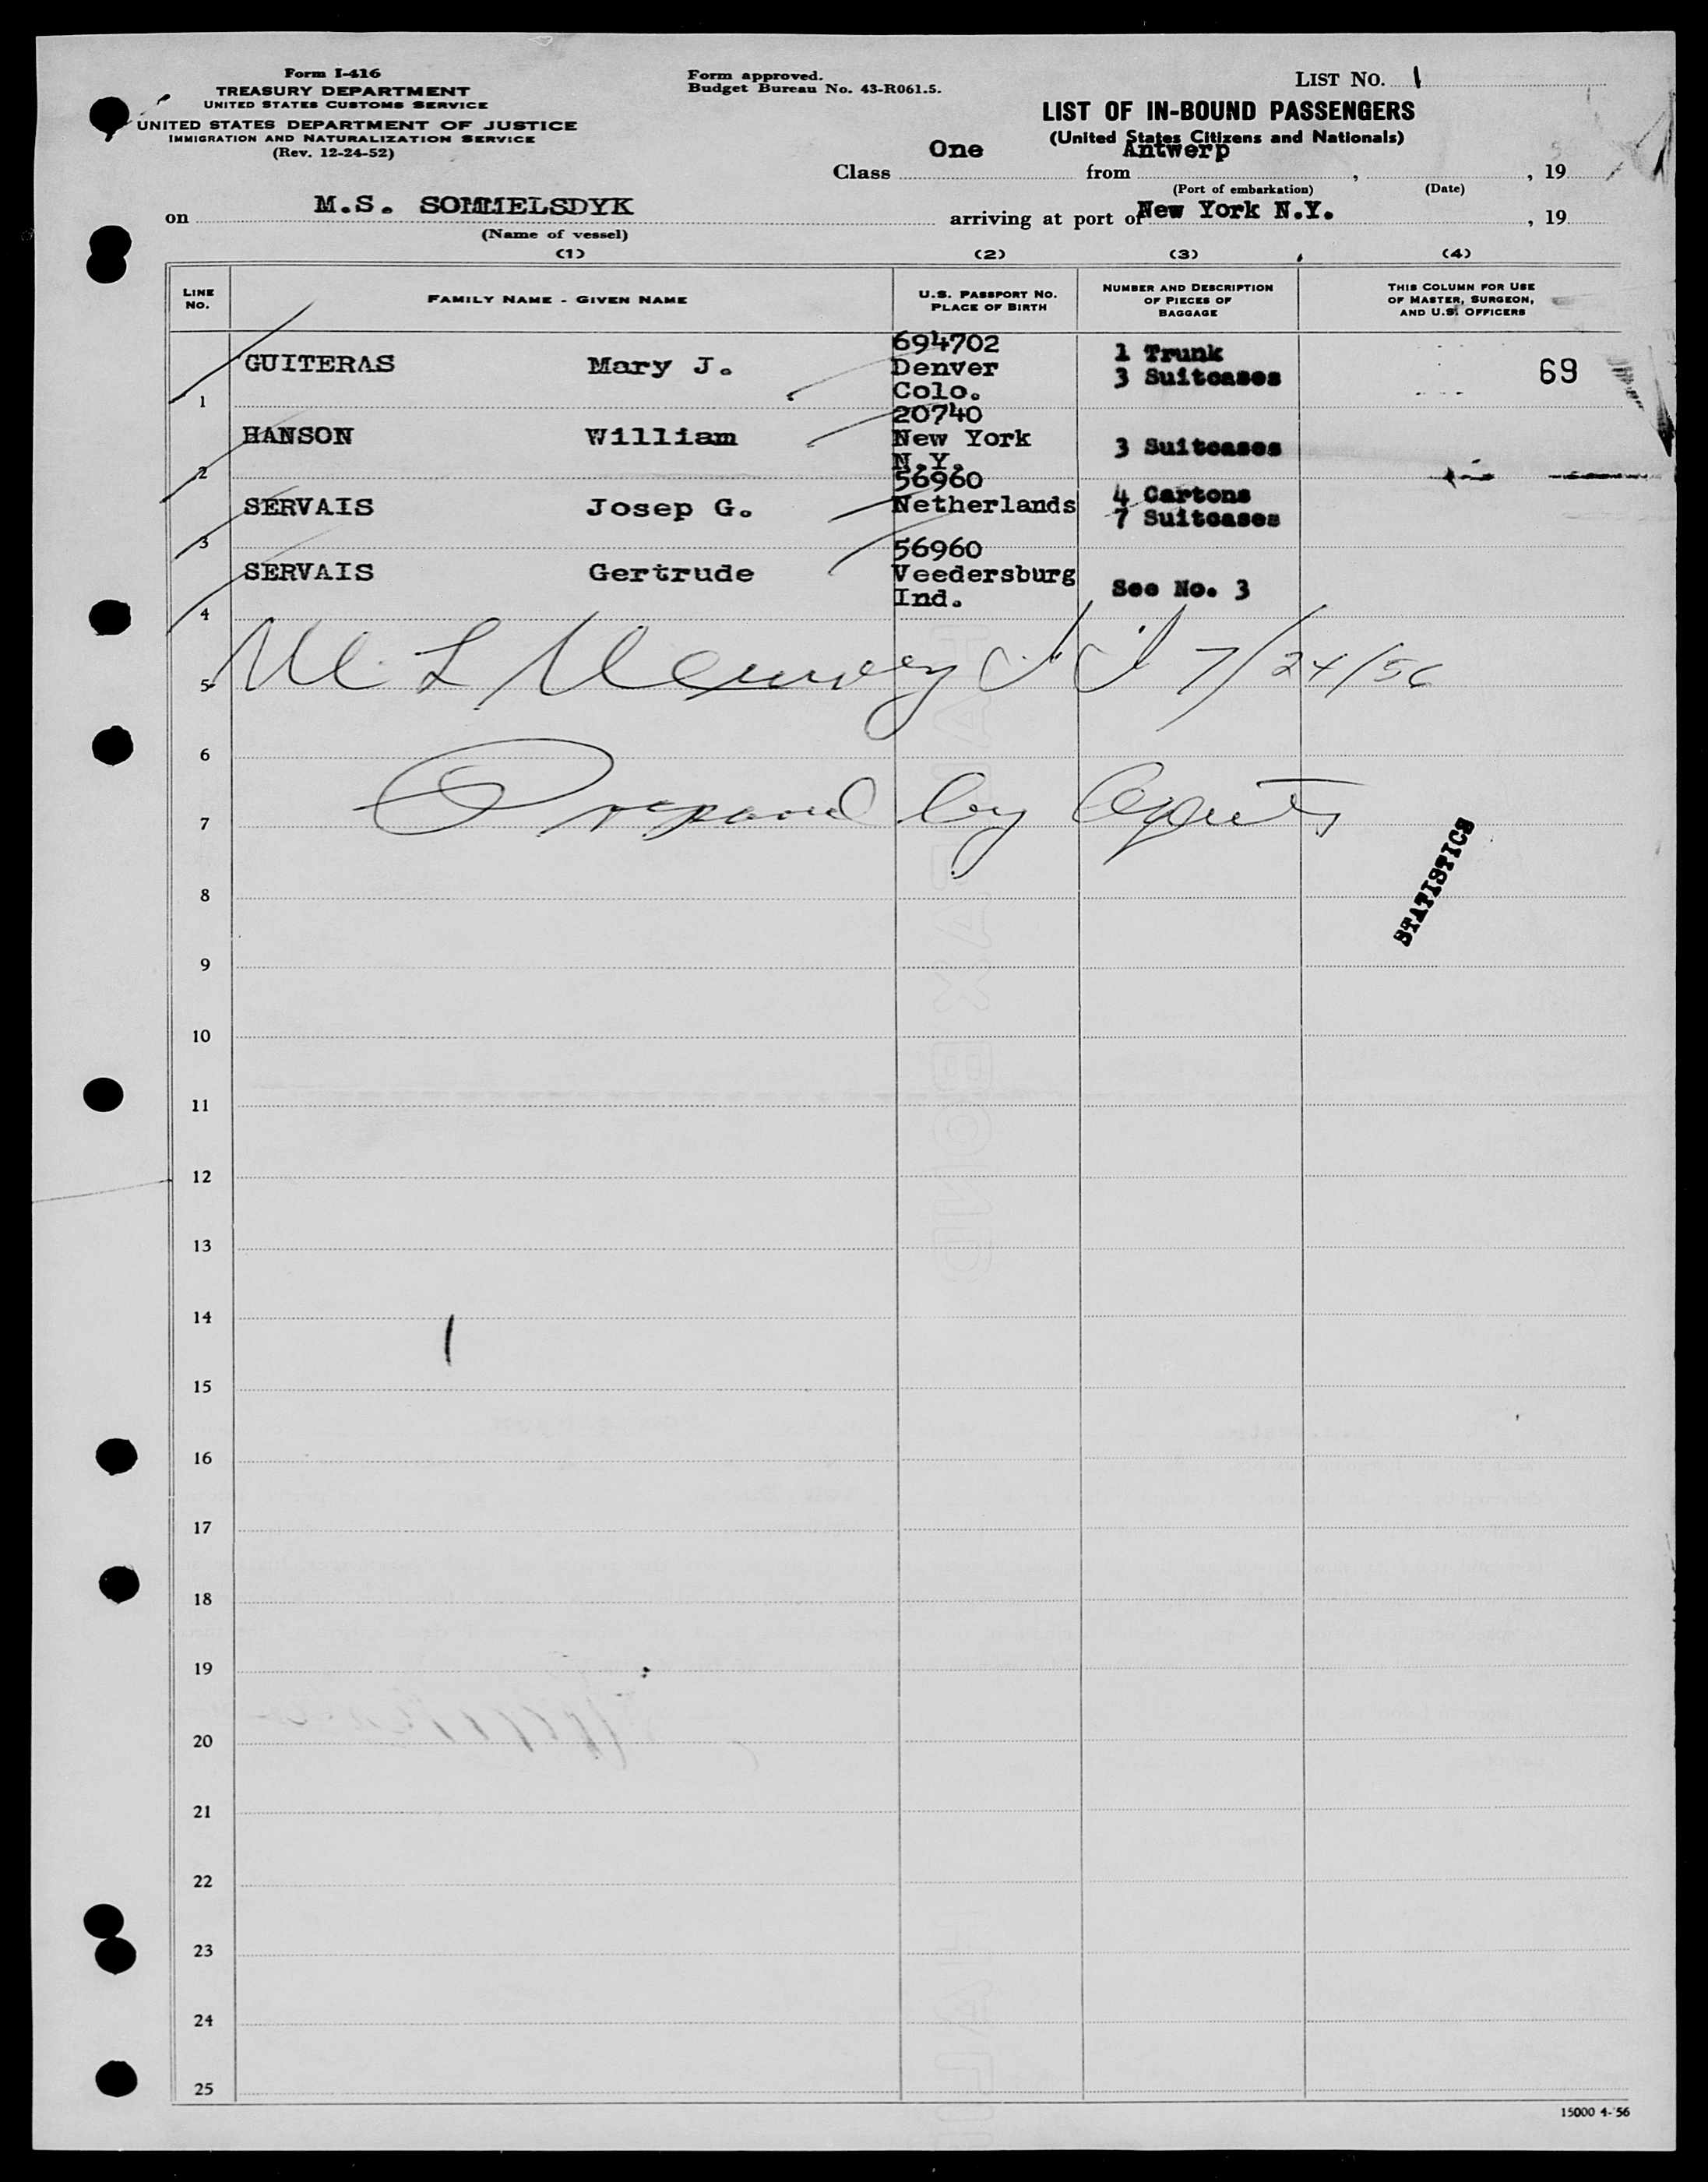 Form I-416
TREASURY DEPARTMENT
UNITED STATES CUSTOMS SERVICE
UNITED STATES DEPARTMENT OF JUSTICE
IMMIGRATION AND NATURALIZATION SERVICE
(Rev. 12-24-52)
Form approved.
Budget Bureau No. 43-R061.5.
LIST NO. 1
LIST OF IN-BOUND PASSENGERS
(United States Citizens and Nationals)
Class One from Antwerp, , 19
(Port of embarkation) (Date)
on M.S. SOMMELSDYK arriving at port of New York N.Y. , 19
(Name of vessel)
(1) (2) (3) (4)
LINE NO. FAMILY NAME - GIVEN NAME U.S. PASSPORT NO. PLACE OF BIRTH NUMBER AND DESCRIPTION OF PIECES OF BAGGAGE THIS COLUMN FOR USE OF MASTER, SURGEON, AND U.S. OFFICERS
1 GUITERAS Mary J. 694702 Denver Colo. 1 Trunk 3 Suitcases 69
2 HANSON William 20740 New York N.Y. 3 Suitcases
3 SERVAIS Josep G. 56960 Netherlands 4 Cartons 7 Suitcases
4 SERVAIS Gertrude 56960 Veedersburg Ind. See No. 3
5 7/24/56
6
7 Prepared by Agents
STATISTICS
8
9
10
11
12
13
14
15
16
17
18
19
20
21
22
23
24
25
15000 4-'56